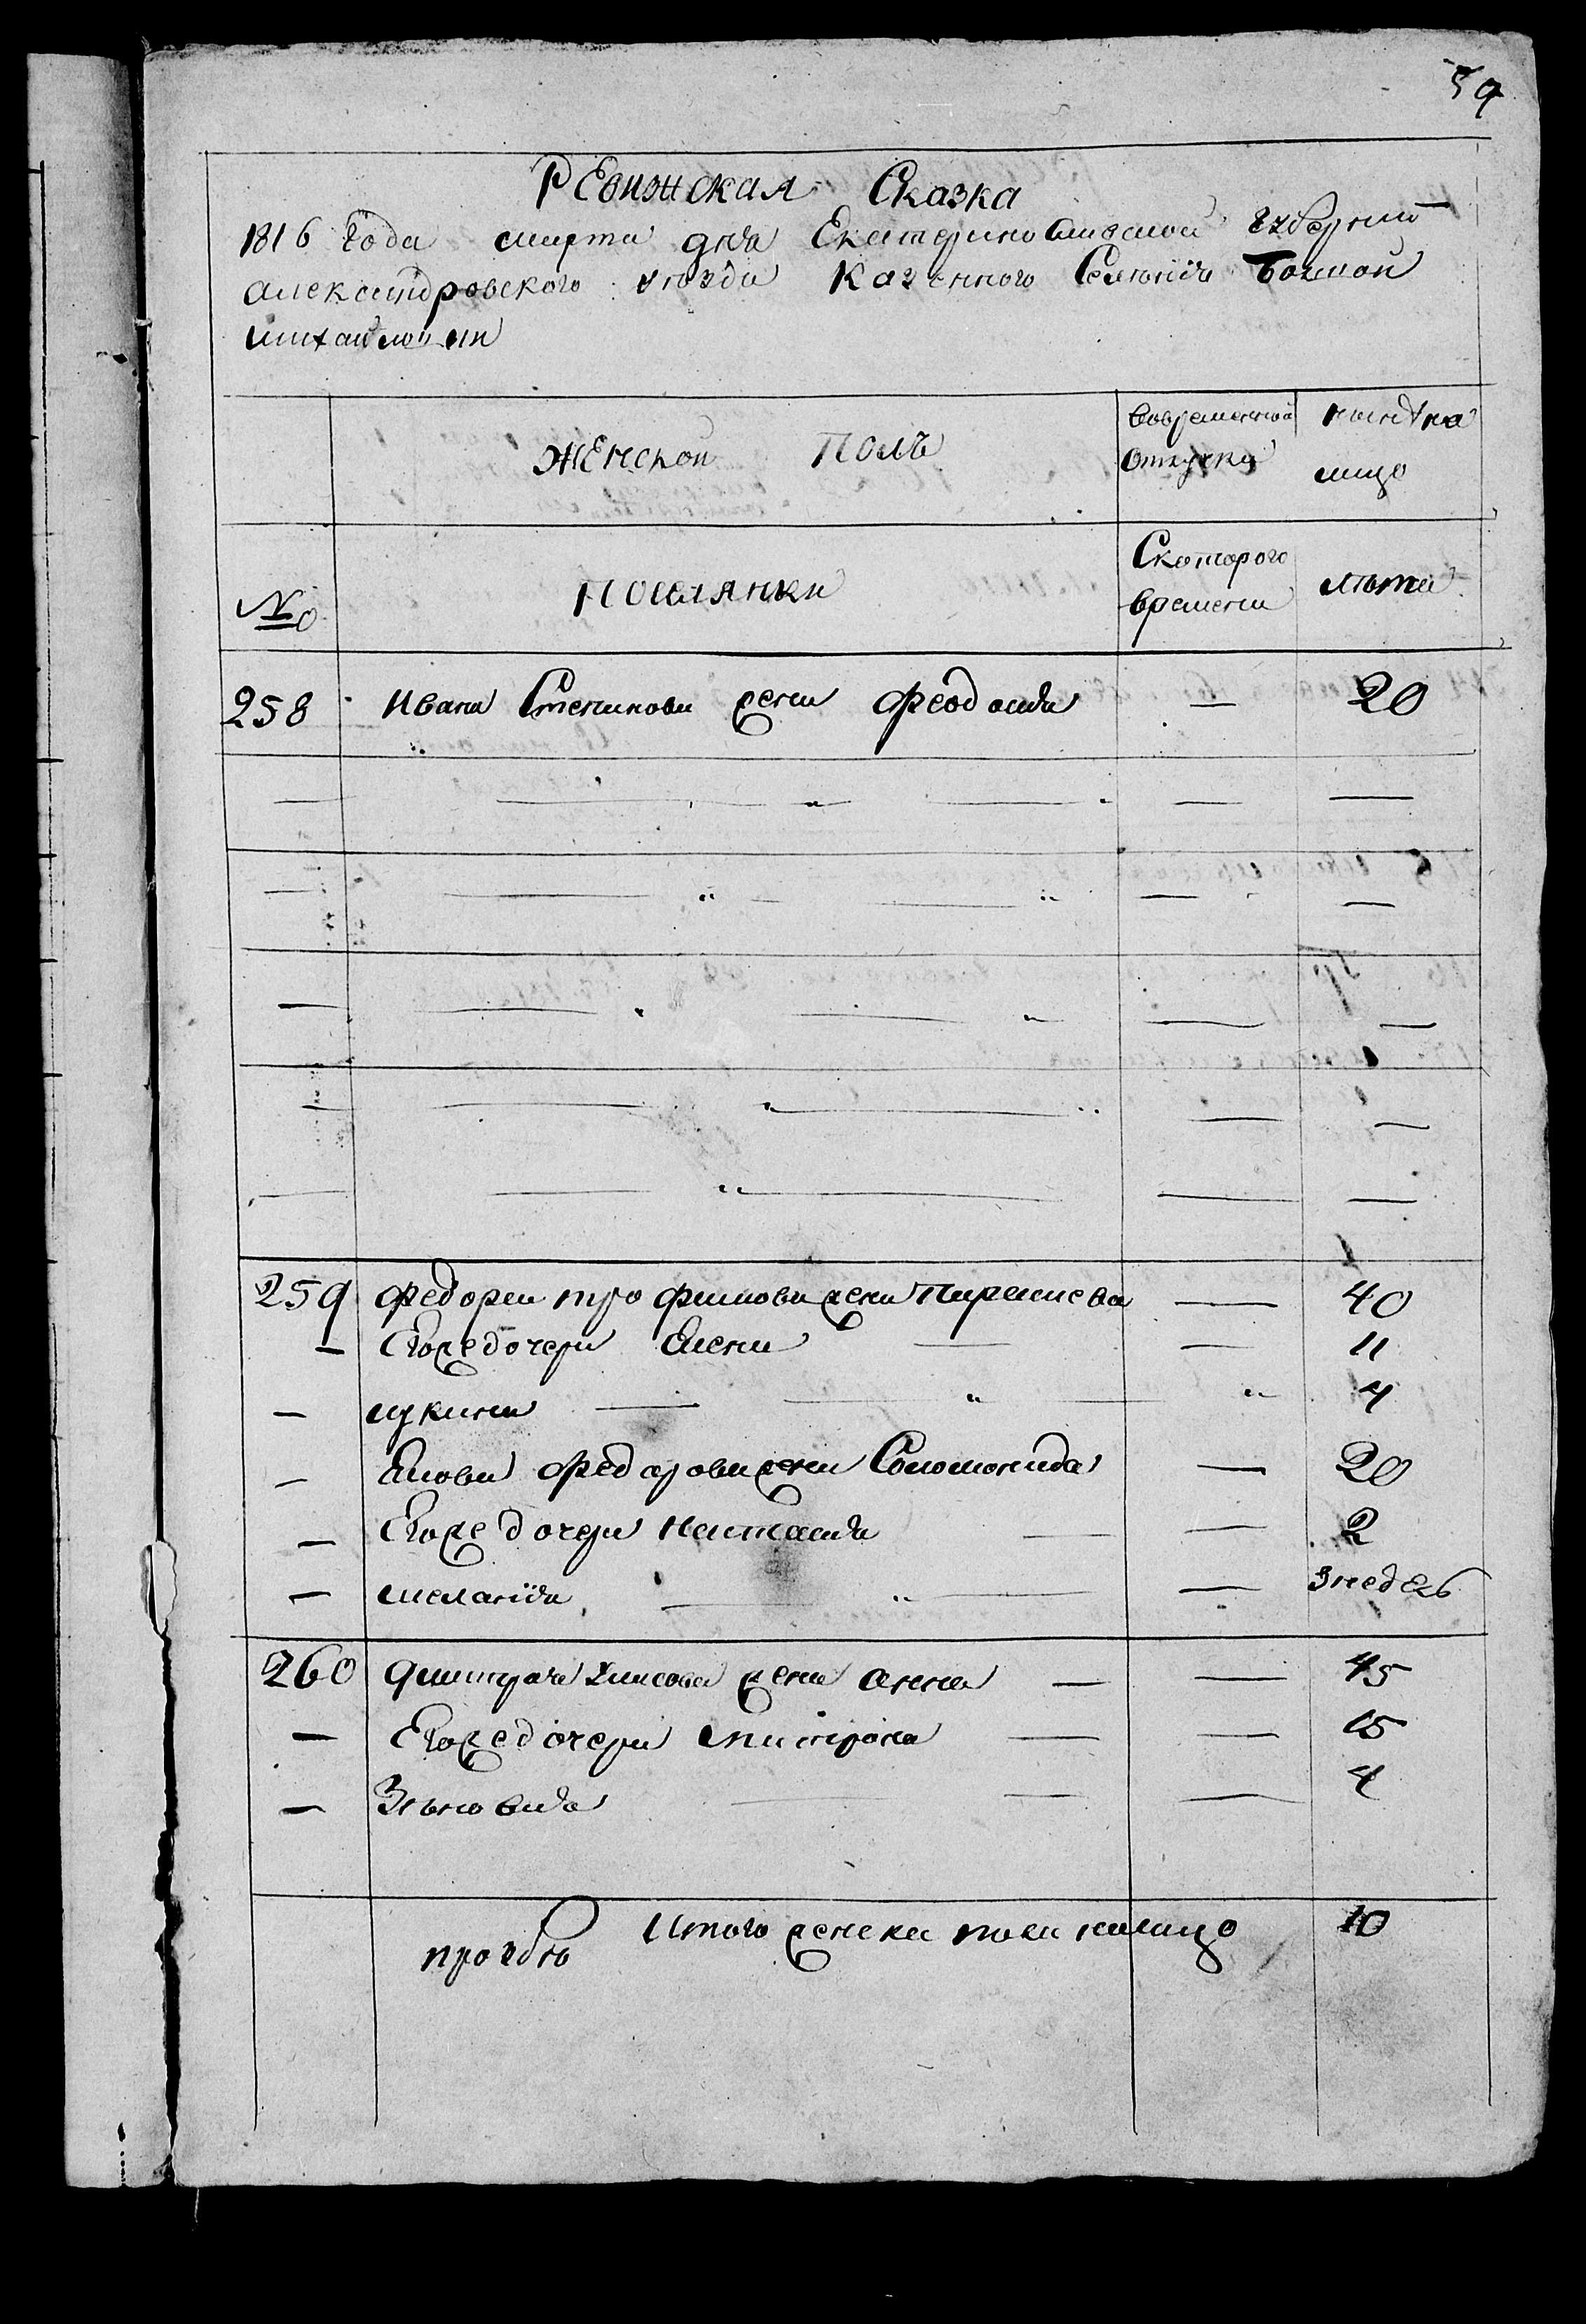 59
Ревижская Сказка
1816 года марта дня Екатеринославской губернии
александровского уюзда Казенного Селенія Богжой
михайловки
женской Полъ
вовременной
отлучки
ныне на
лицо
№
поселянки
Скоторого
времени
люта
258 Ивана Степанова жена Феодосія — 20
259 Федора трофимова жена Параскева — 40
— Егоже дочери Елена — 11
— лукина — 4
— Якова Федорова жена Соломонида — 20
— Егоже дочери Настасія — 2
— меланія — 3 недель
260 дмитрия жена анна — 45
— Егоже дочери матрона — 15
— Зюновия — 4
Итого женска пола налицо 10